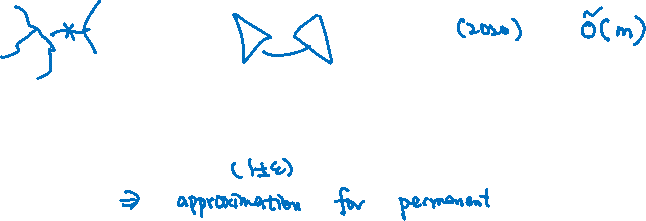 (2020) Õ(m)
(1±ε)
⇒ approximation for permanent